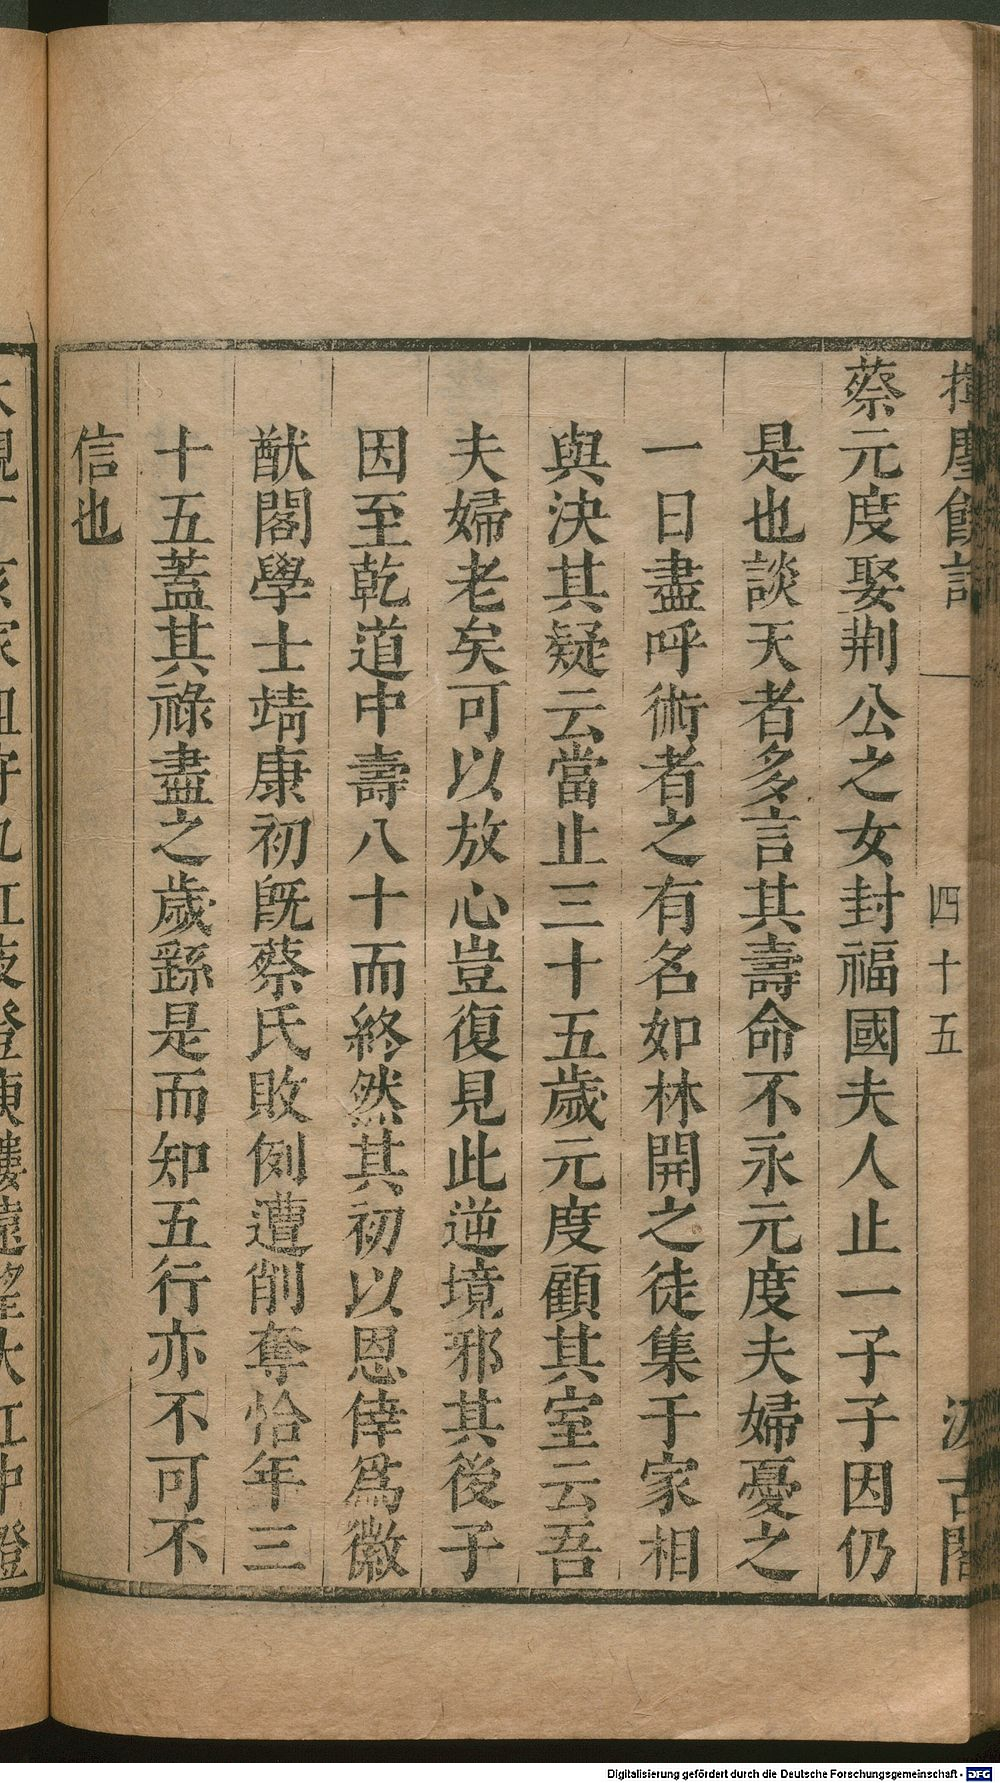 揮麈餘話 一 四十五 汲古閣
蔡元度娶荆公之女封福國夫人止一子子因仍
是也談天者多言其壽命不永元度夫婦憂之
一日盡呼術者之有名如林開之徒集于家相
與決其疑云當止三十五歲元度顧其室云吾
夫婦老矣可以放心豈復見此逆境邪其後子
因至乾道中壽八十而終然其初以恩倖爲徽
猷閣學士靖康初旣蔡氏敗例遭削奪恰年三
十五蓋其祿盡之歲繇是而知五行亦不可不
信也
Digitalisierung gefördert durch die Deutsche Forschungsgemeinschaft - DFG